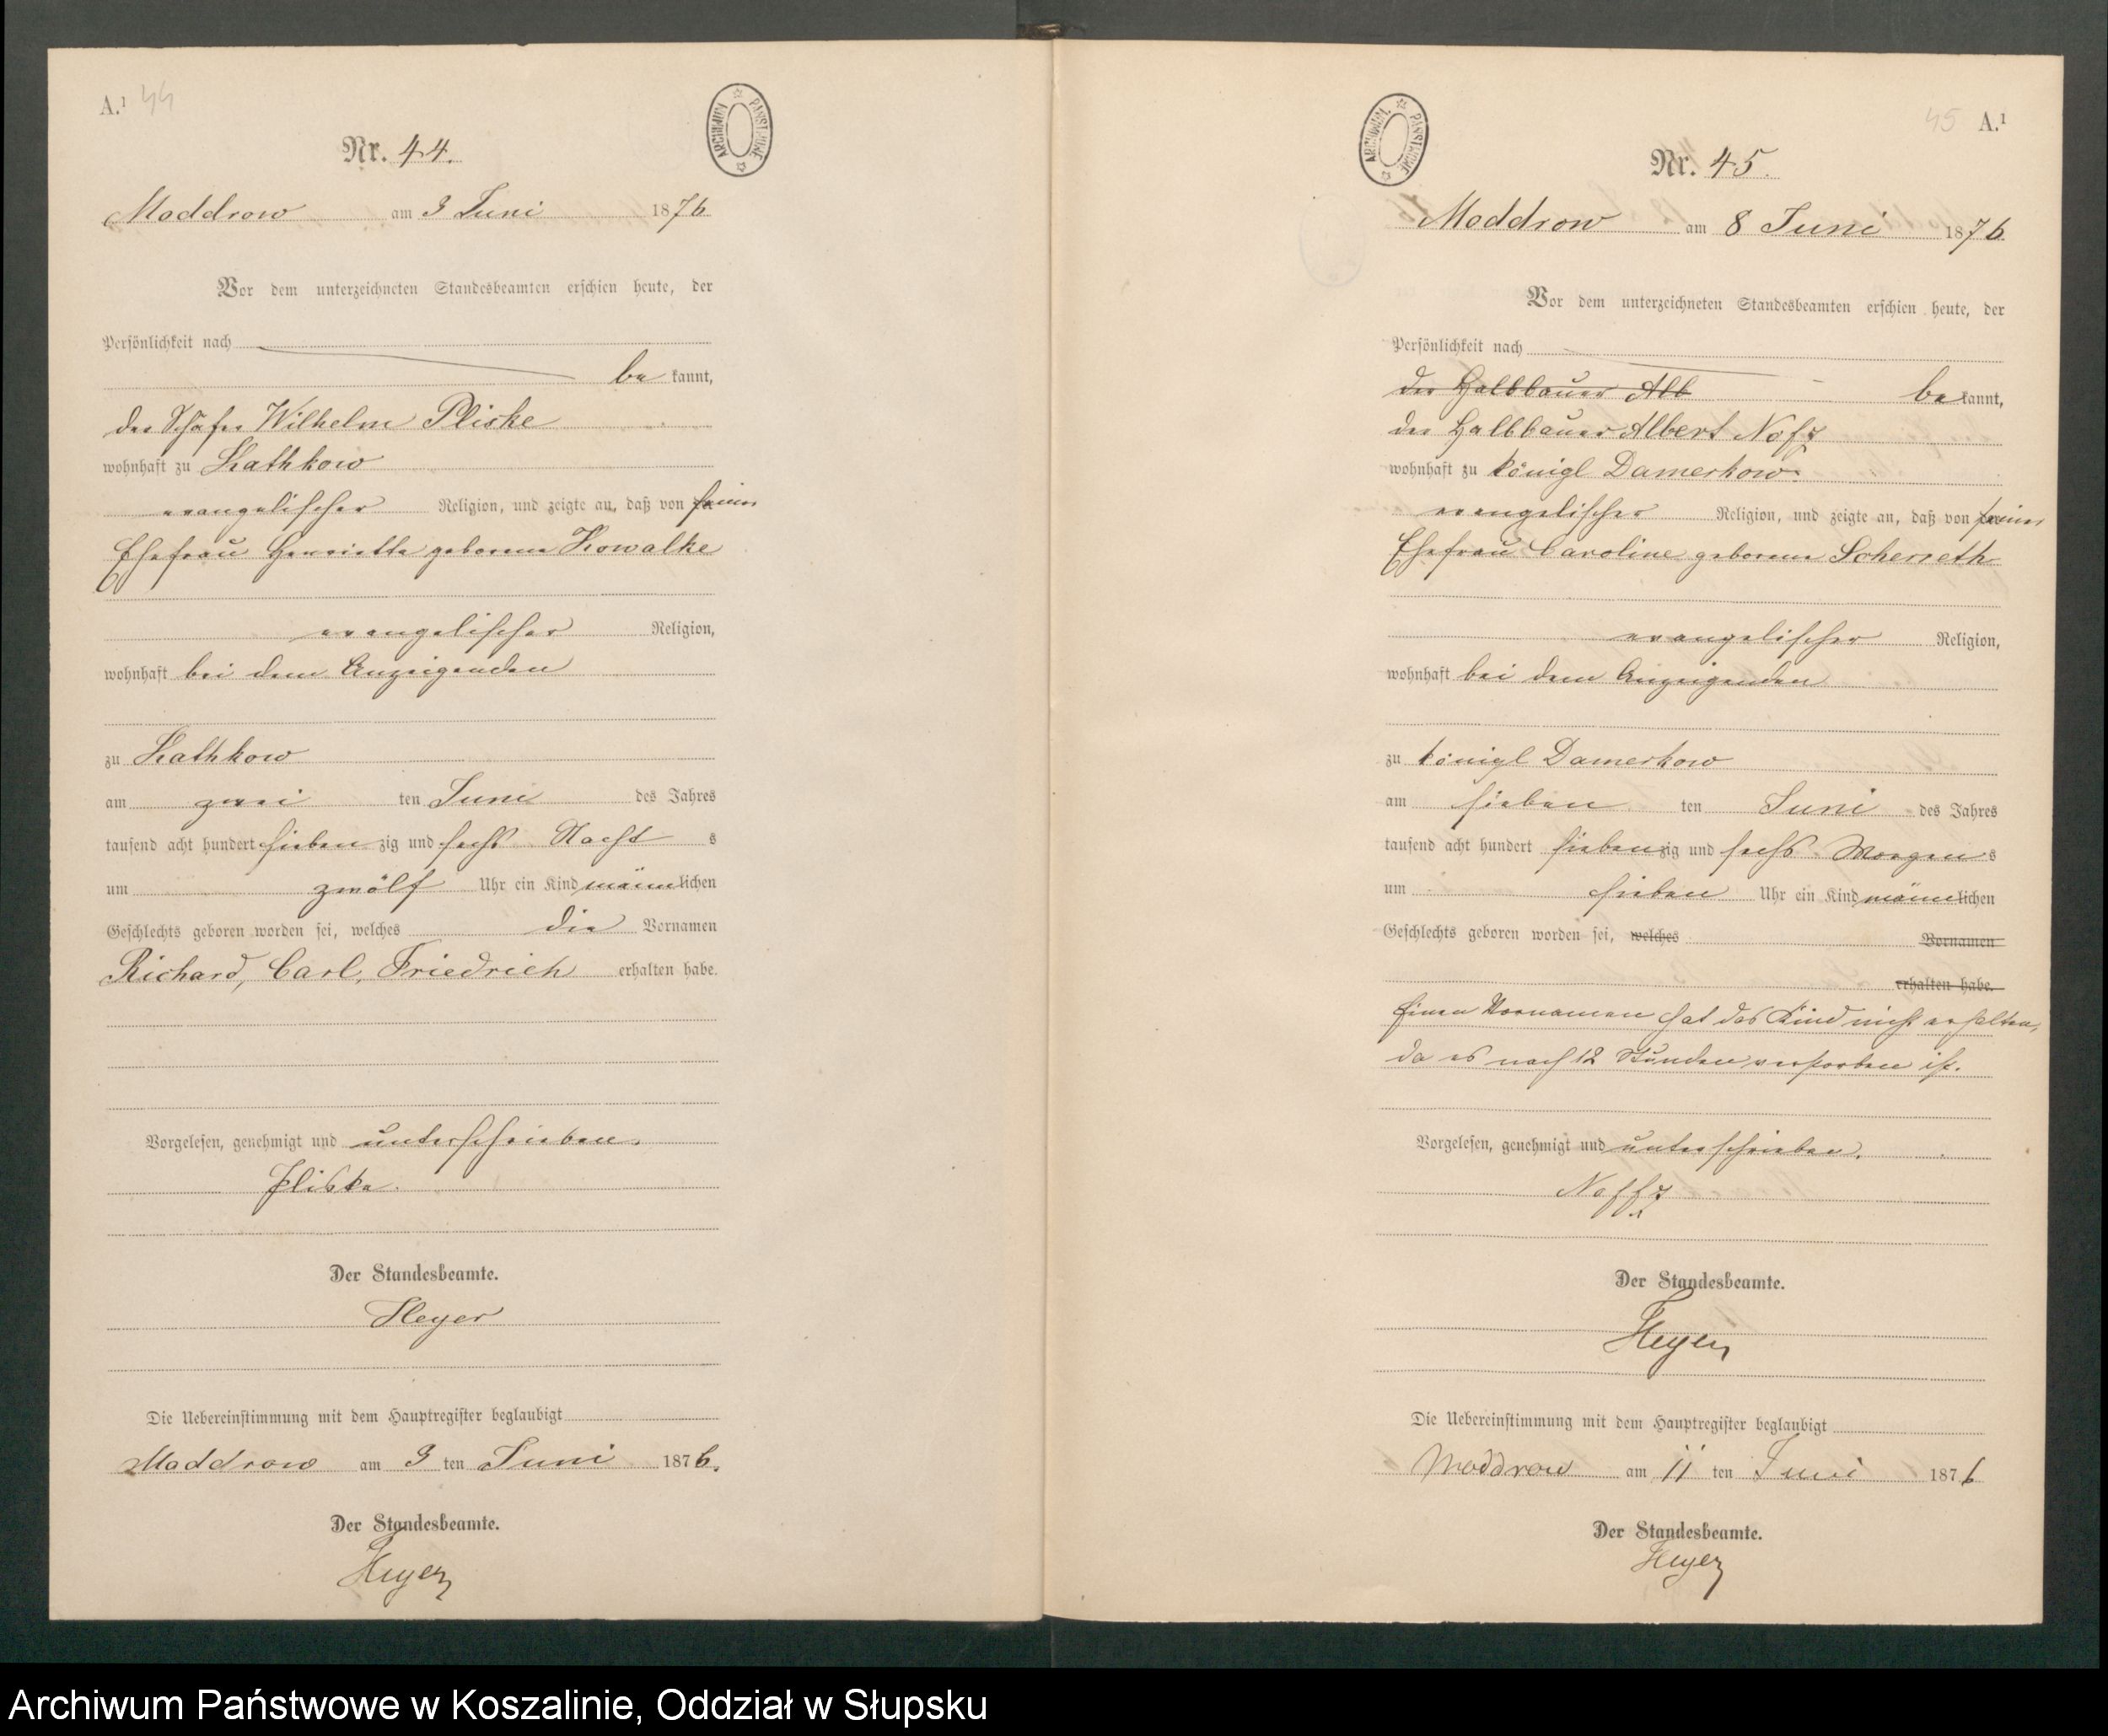 A.¹ 44
ARCHIWUM PAŃSTWOWE
Nr. 44.
Moddrow am 3 Juni 1876
Vor dem unterzeichneten Standesbeamten erschien heute, der
Persönlichkeit nach
be kannt,
der Schäfer Wilhelm Pliske
wohnhaft zu Kathkow
evangelischer Religion, und zeigte an, daß von seiner
Ehefrau Henriette geborene Kowalke
evangelischer Religion,
wohnhaft bei dem Anzeigenden
zu Kathkow
am zwei ten Juni des Jahres
tausend acht hundert sieben zig und sechs Nacht s
um zwölf Uhr ein Kind männlichen
Geschlechts geboren worden sei, welches die Vornamen
Richard, Carl, Friedrich erhalten habe.
Vorgelesen, genehmigt und unterschrieben.
Pliske.
Der Standesbeamte.
Heyer
Die Uebereinstimmung mit dem Hauptregister beglaubigt
Moddrow am 3 ten Juni 1876.
Der Standesbeamte.
Heyer
45 A.¹
ARCHIWUM PAŃSTWOWE
Nr. 45.
Moddrow am 8 Juni 1876.
Vor dem unterzeichneten Standesbeamten erschien heute, der
Persönlichkeit nach
der Halbbauer Alb be kannt,
der Halbbauer Albert Noffz
wohnhaft zu königl Damerkow
evangelischer Religion, und zeigte an, daß von seiner
Ehefrau Caroline geborene
evangelischer Religion,
wohnhaft bei dem Anzeigenden
zu königl Damerkow
am sieben ten Juni des Jahres
tausend acht hundert siebenzig und sechs Morgens
um sieben Uhr ein Kind männlichen
Geschlechts geboren worden sei, welches Vornamen
erhalten habe.
Einen Vornamen hat das Kind nicht erhalten,
da es nach 12 Stunden verstorben ist.
Vorgelesen, genehmigt und unterschrieben.
Noffz
Der Standesbeamte.
Heyer
Die Uebereinstimmung mit dem Hauptregister beglaubigt
Moddrow am 11 ten Juni 1876
Der Standesbeamte.
Heyer
Archiwum Państwowe w Koszalinie, Oddział w Słupsku